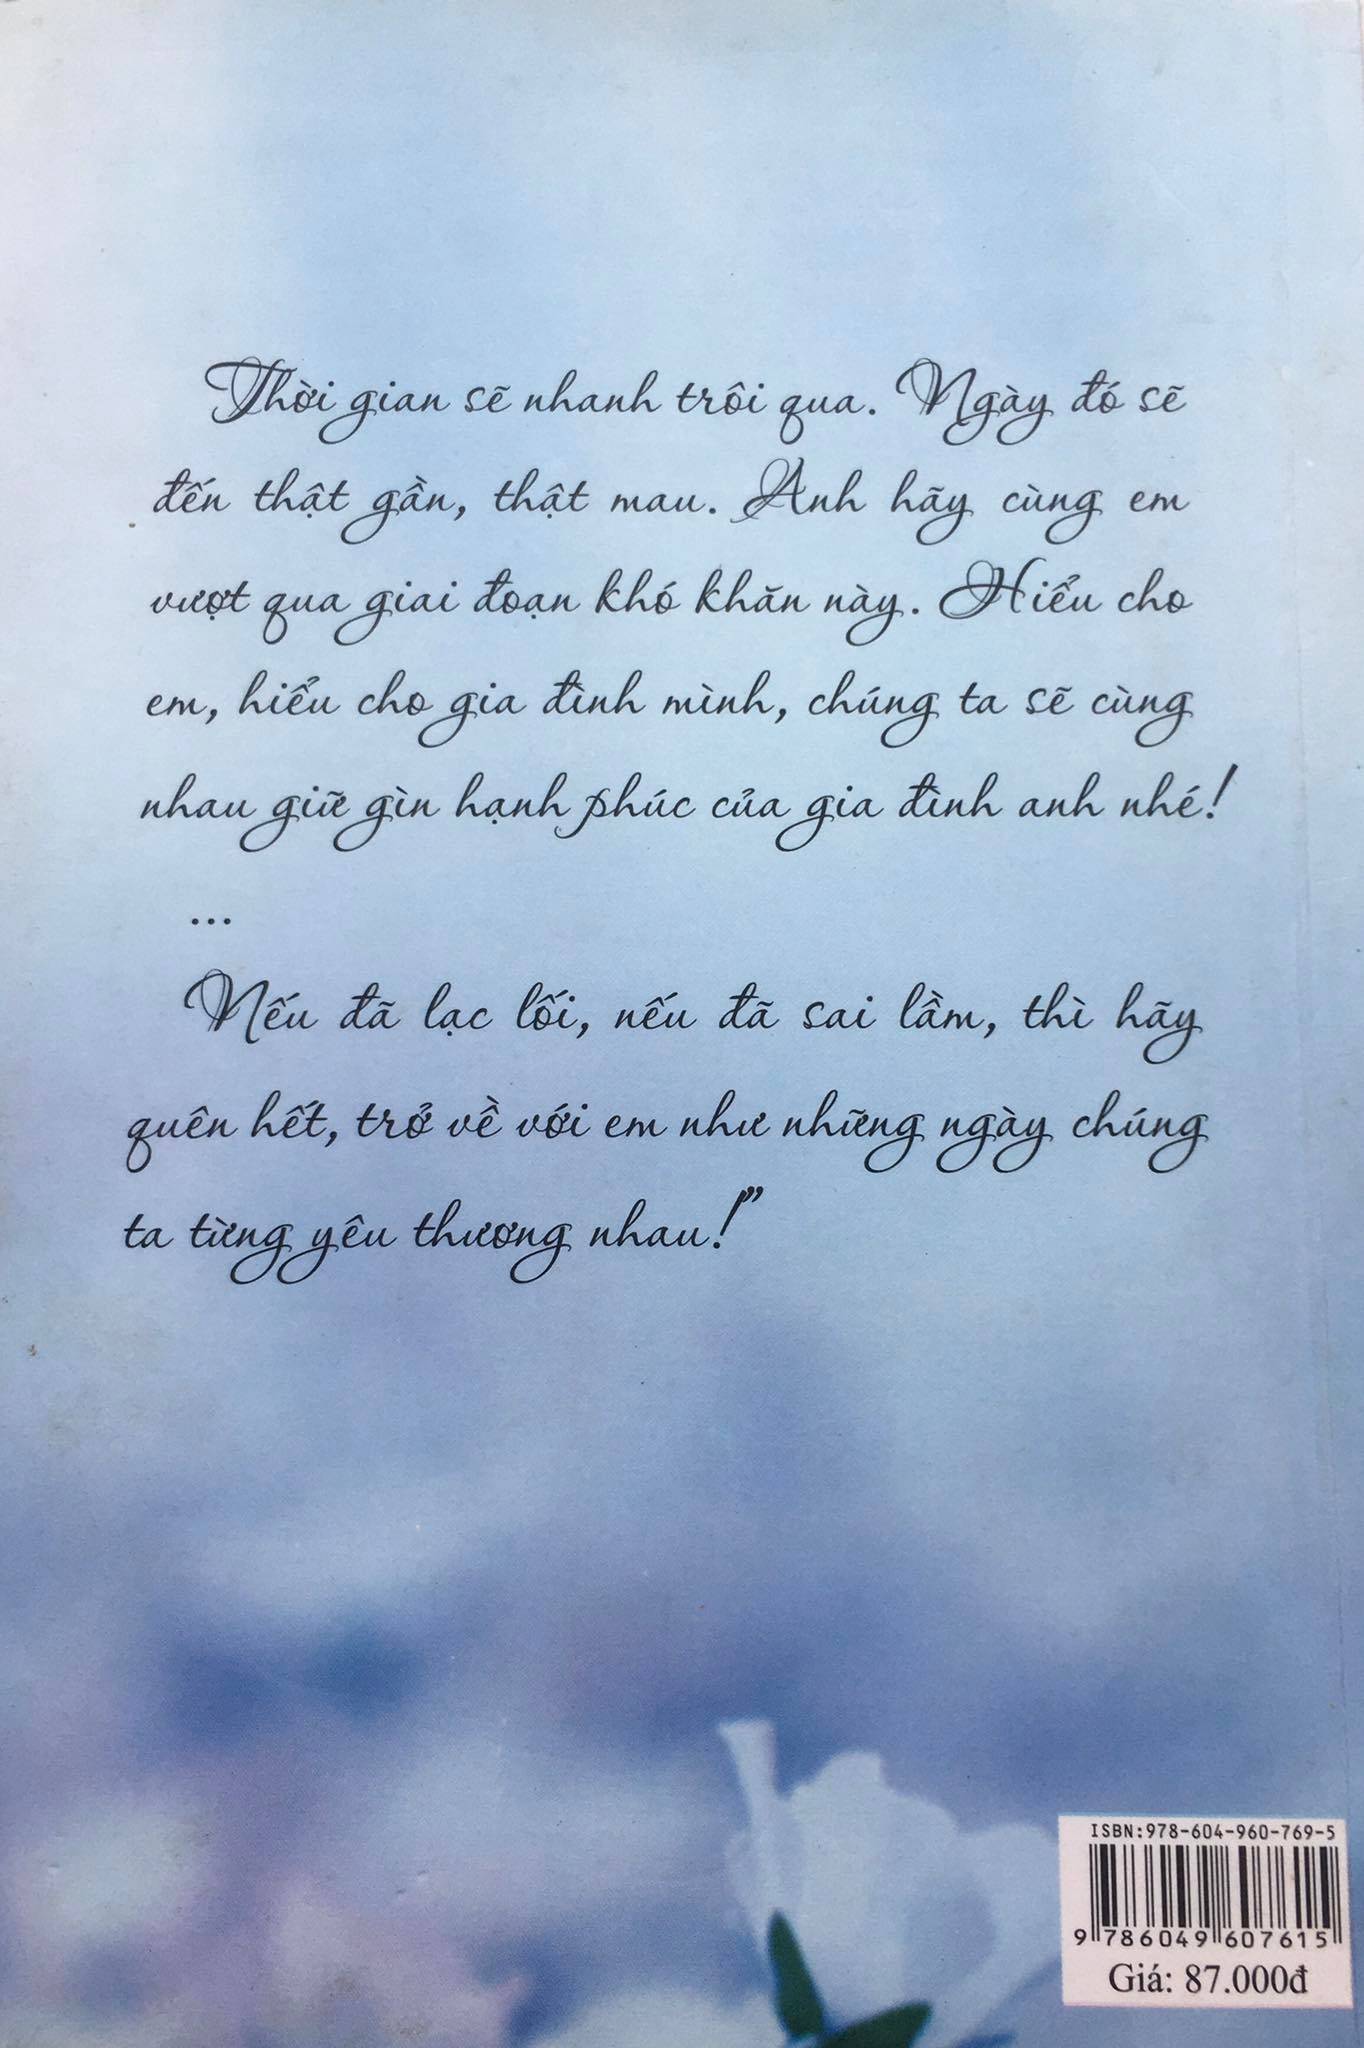 Thời gian sẽ nhanh trôi qua. Ngày đó sẽ
đến thật gần, thật mau. Anh hãy cùng em
vượt qua giai đoạn khó khăn này. Hiểu cho
em, hiểu cho gia đình mình, chúng ta sẽ cùng
nhau giữ gìn hạnh phúc của gia đình anh nhé!
...
Nếu đã lạc lối, nếu đã sai lầm, thì hãy
quên hết, trở về với em như những ngày chúng
ta từng yêu thương nhau!”
ISBN:978-604-960-769-5
9 786049 607615
Giá: 87.000đ